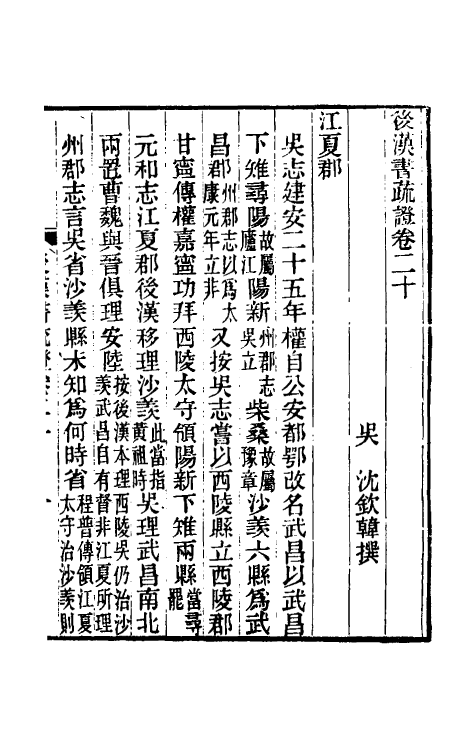 後漢書疏證卷二十
吳 沈欽韓撰
江夏郡
吳志建安二十五年權自公安都鄂改名武昌以武昌
下雉尋陽故屬廬江陽新州郡志吳立柴桑故屬豫章沙羨六縣爲武
昌郡州郡志以爲太康元年立非又按吳志嘗以西陵縣立西陵郡
甘寧傳權嘉寧功拜西陵太守領陽新下雉兩縣當尋罷
元和志江夏郡後漢移理沙羨此當指黃祖時吳理武昌南北
兩置曹魏與晉俱理安陸按後漢本理西陵吳仍治沙羨武昌自有督非江夏所理
州郡志言吳省沙羨縣未知爲何時省程普傳領江夏太守治沙羨則